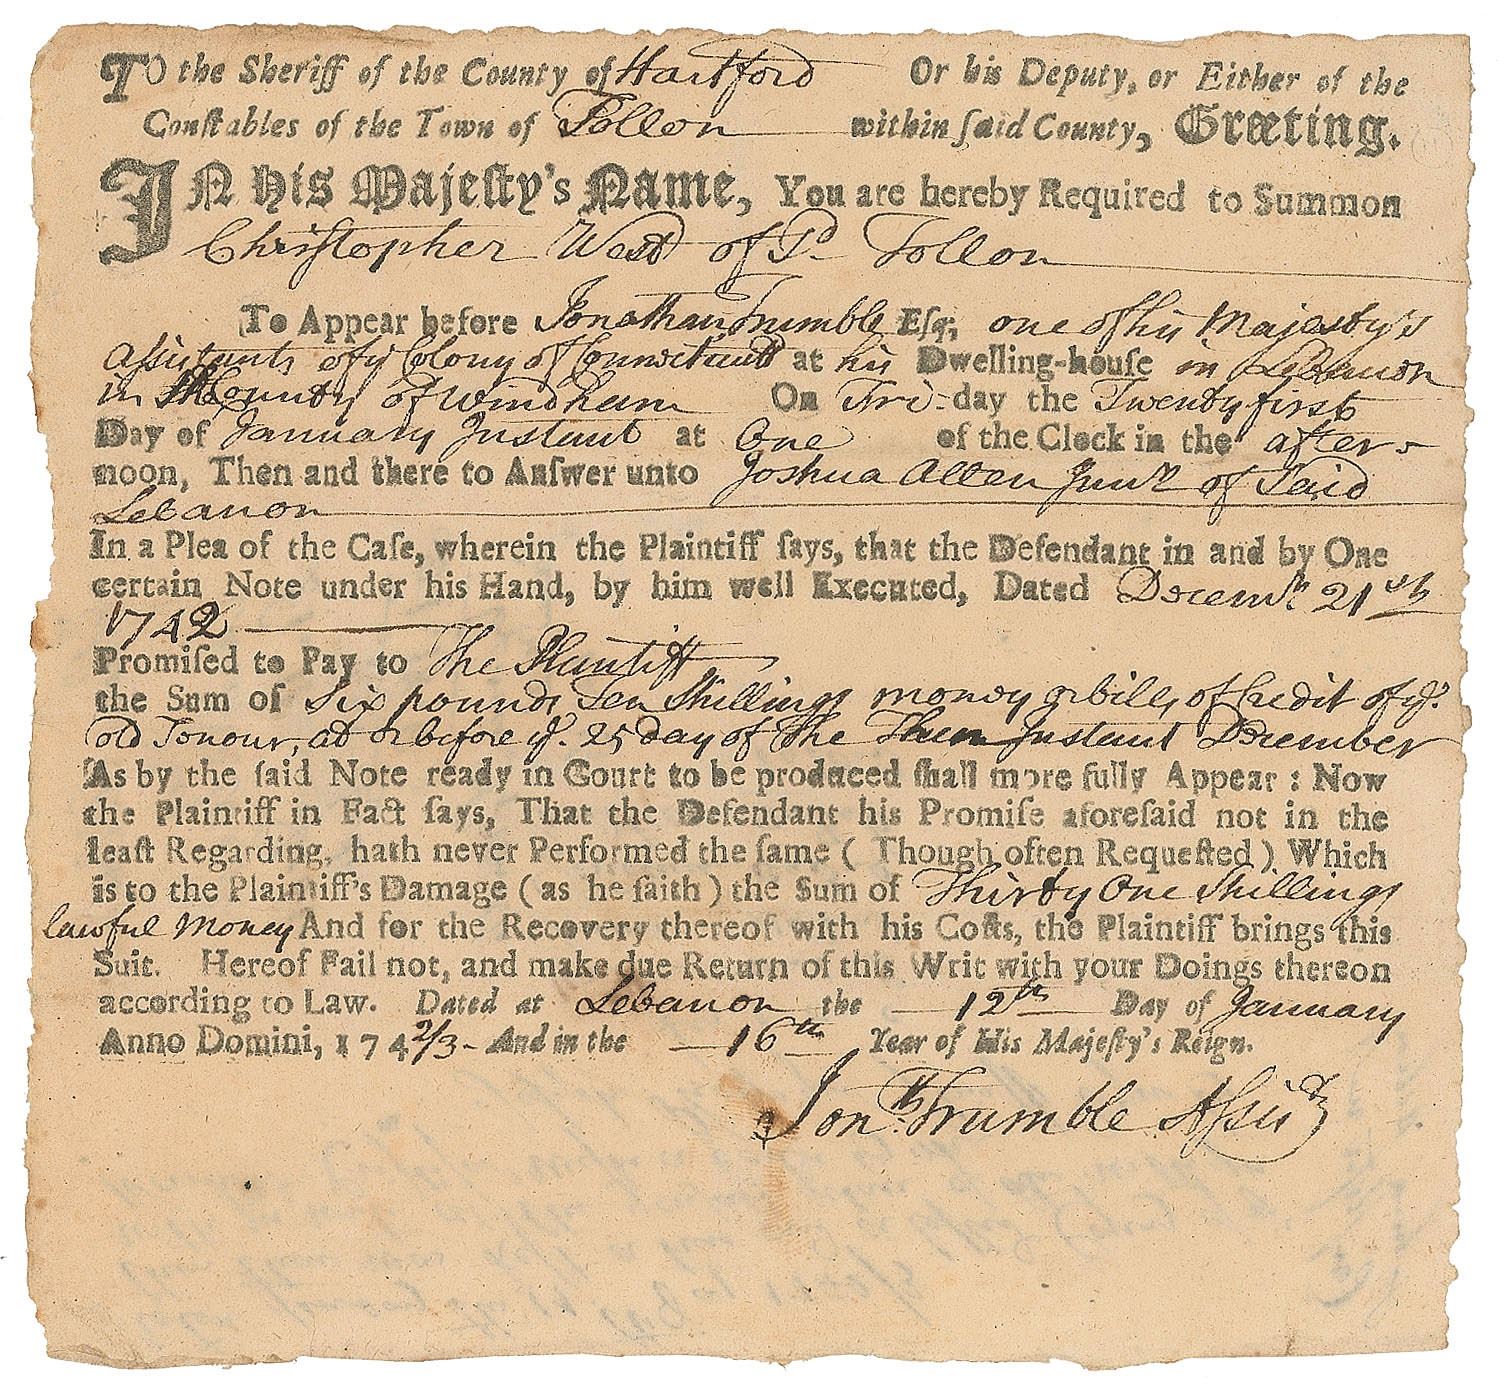 TO the Sheriff of the County of Hartford Or his Deputy, or Either of the
Conſtables of the Town of Tollon within ſaid County, Greeting.
IN His Majeſty's Name, You are hereby Required to Summon
Christopher West of Sd Tollon
To Appear before Jonathan Trumble Eſq; one of his Majesty's
assistants of ye Colony of Connecticutt at his Dwelling-houſe in Lebanon
in County of Windham On Fri-day the Twenty first
Day of January Instant at One of the Clock in the after-
noon, Then and there to Anſwer unto Joshua Allen Junr of Said
Lebanon
In a Plea of the Caſe, wherein the Plaintiff ſays, that the Defendant in and by One
certain Note under his Hand, by him well Executed, Dated Decemr 21st
1742
Promiſed to Pay to The Plantiff
the Sum of Six pounds Ten Shillings money or bills of Credit of ye
old Tonour, at or before ye 25 day of the Then Instant December
As by the ſaid Note ready in Court to be produced ſhall more fully Appear: Now
the Plaintiff in Fact ſays, That the Defendant his Promiſe aforeſaid not in the
leaſt Regarding, hath never Performed the ſame ( Though often Requeſted ) Which
is to the Plaintiff's Damage ( as he ſaith ) the Sum of Thirty One Shillings
lawful money And for the Recovery thereof with his Coſts, the Plaintiff brings this
Suit. Hereof Fail not, and make due Return of this Writ with your Doings thereon
according to Law. Dated at Lebanon the 12th Day of January
Anno Domini, 1742/3- And in the 16th Year of His Majeſty's Reign.
Jonth Trumble Assist